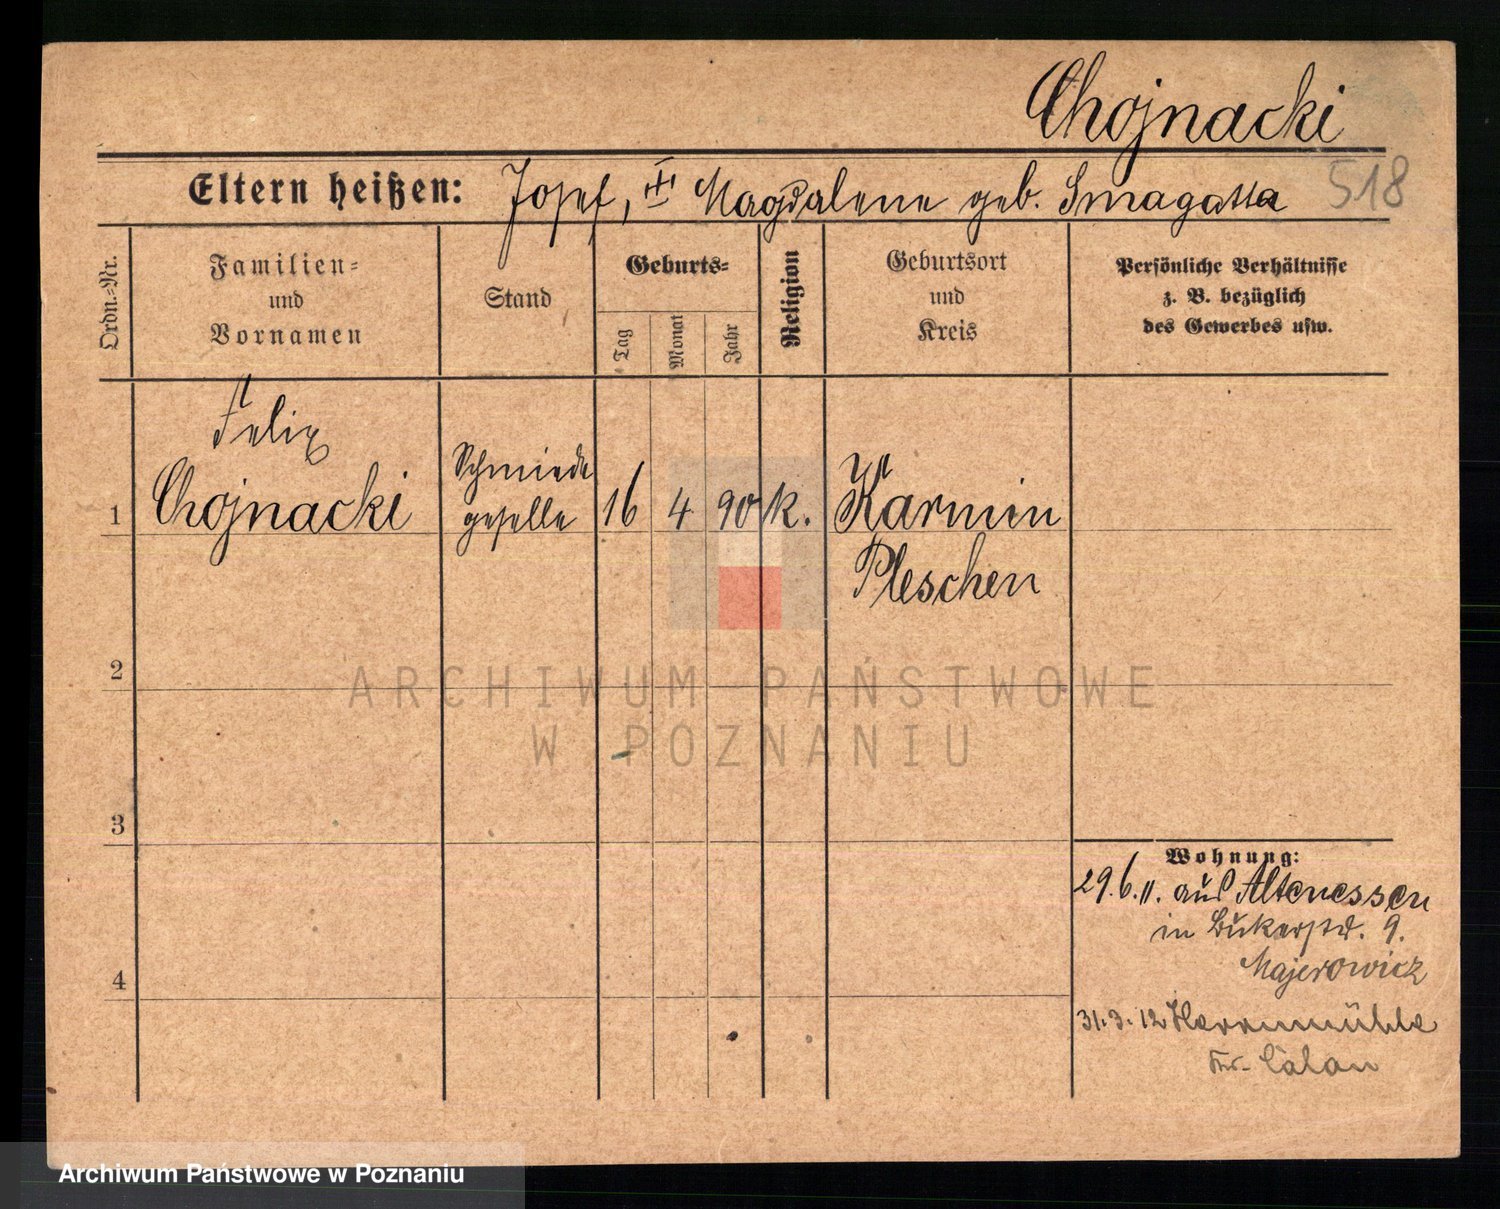 Chojnacki
Eltern heißen: Josef, Magdalene geb. Smagatta
518
Ordn.-Nr.
Familien-
und
Vornamen
Stand
Geburts-
Tag
Monat
Jahr
Religion
Geburtsort
und
Kreis
Persönliche Verhältnisse
z. B. bezüglich
des Gewerbes usw.
1
Felix
Chojnacki
Schmiede
geselle
16 4 90 k.
Karmin
Pleschen
2
3
4
Wohnung:
29.6.11. aus Altenessen
in Bukerstr. 9.
Majerowicz
31.3.12 Herrnmühle
Kr. Calau
ARCHIWUM PAŃSTWOWE
W POZNANIU
Archiwum Państwowe w Poznaniu